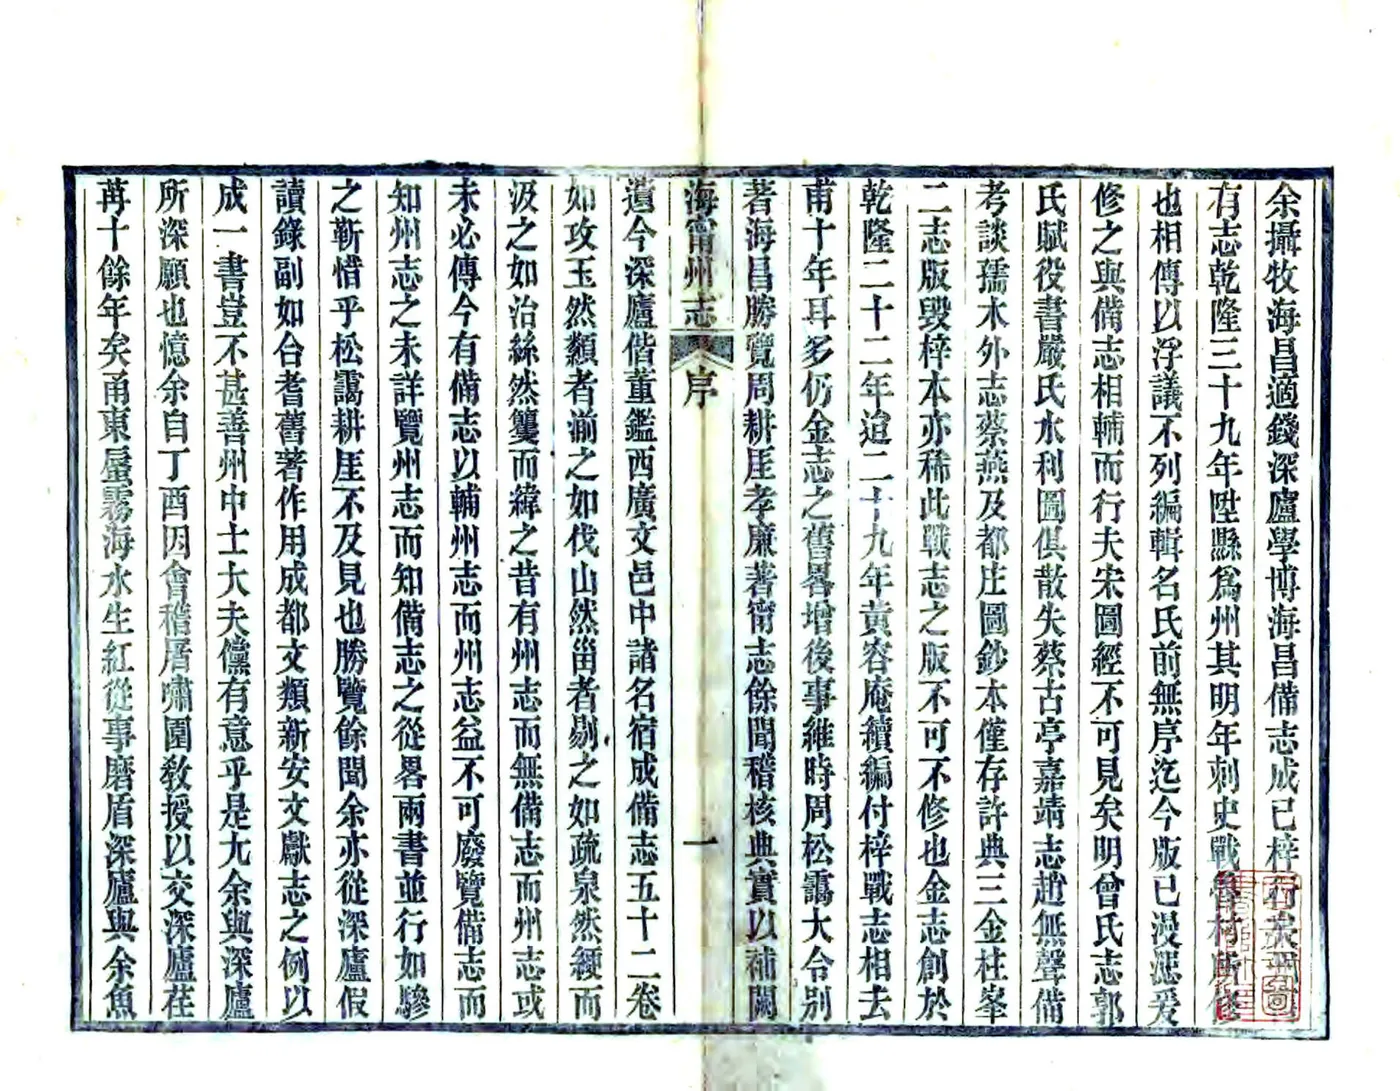 余攝牧海昌適錢深廬學博海昌備志成已梓行矣
有志乾隆三十九年陞縣爲州其明年刺史戰
也相傳以浮議不列編輯名氏前無序迄今版已漫漶爰
修之與備志相輔而行夫宋圖經不可見矣明曾氏志郭
氏賦役書嚴氏水利圖俱散失蔡古亭嘉靖志趙無聲備
考談孺木外志蔡燕及都庄圖鈔本僅存許典三金柱峯
二志版毀梓本亦稀此戰志之版不可不修也金志創於
乾隆二十二年迨二十九年黃容庵續編付梓戰志相去
甫十年耳多仍金志之舊畧增後事維時周松靄大令別
著海昌勝覽周耕厓孝廉著甯志餘聞稽核典實以補闕
海甯州志 序 一
遺今深廬偕董鑑西廣文邑中諸名宿成備志五十二卷
如攻玉然纇者湔之如伐山然甾者剔之如疏泉然綆而
汲之如治絲然籰而緯之昔有州志而無備志而州志或
未必傳今有備志以輔州志而州志益不可廢覽備志而
知州志之未詳覽州志而知備志之從畧兩書並行如驂
之靳惜乎松靄耕厓不及見也勝覽餘聞余亦從深廬假
讀錄副如合耆舊著作用成都文類新安文獻志之例以
成一書豈不甚善州中士大夫儻有意乎是尢余與深廬
所深願也憶余自丁酉因會稽屠嘯園敎授以交深廬荏
苒十餘年矣甬東蜃霧海水生紅從事磨盾深廬與余魚